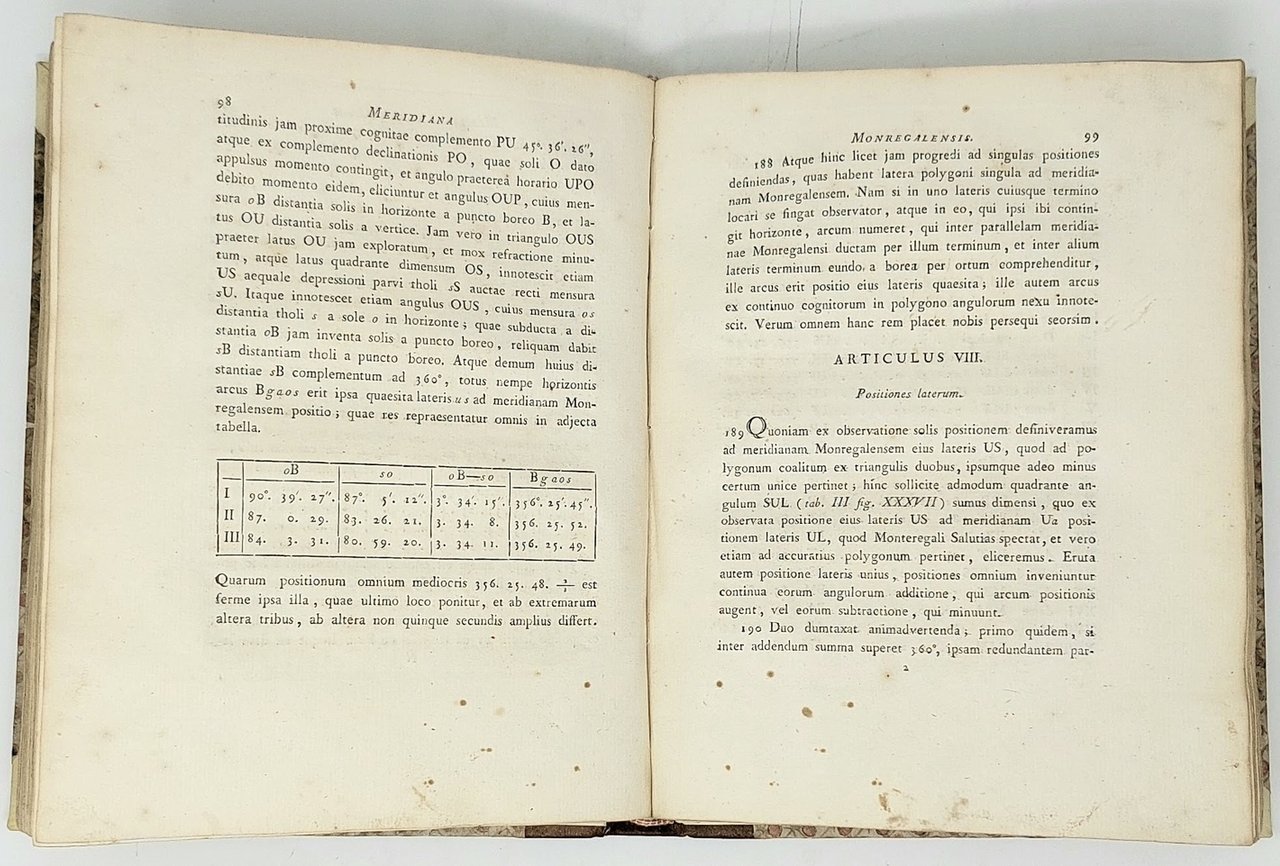 98
MERIDIANA
titudinis jam proxime cognitae complemento PU 45°. 36'. 26",
atque ex complemento declinationis PO, quae soli O dato
appulsus momento contingit, et angulo praetereà horario UPO
debito momento eidem, eliciuntur et angulus OUP, cuius men-
sura oB distantia solis in horizonte a puncto boreo B, et la-
tus OU distantia solis a vertice. Jam vero in triangulo OUS
praeter latus OU jam exploratum, et mox refractione minu-
tum, atque latus quadrante dimensum OS, innotescit etiam
US aequale depressioni parvi tholi sS auctae recti mensura
sU. Itaque innotescet etiam angulus OUS, cuius mensura os
distantia tholi s a sole o in horizonte; quae subducta a di-
stantia oB jam inventa solis a puncto boreo, reliquam dabit
sB distantiam tholi a puncto boreo. Atque demum huius di-
stantiae sB complementum ad 360°, totus nempe horizontis
arcus Bgaos erit ipsa quaesita lateris us ad meridianam Mon-
regalensem positio; quae res repraesentatur omnis in adjecta
tabella.
oB so oB—so Bgaos
I 90°. 39'. 27". 87°. 5'. 12". 3°. 34'. 15'. 356°. 25'. 45".
II 87. 0. 29. 83. 26. 21. 3. 34. 8. 356. 25. 52.
III 84. 3. 31. 80. 59. 20. 3. 34. 11. 356. 25. 49.
Quarum positionum omnium mediocris 356. 25. 48. est
ferme ipsa illa, quae ultimo loco ponitur, et ab extremarum
altera tribus, ab altera non quinque secundis amplius differt.
MONREGALENSIS.
99
188 Atque hinc licet jam progredi ad singulas positiones
definiendas, quas habent latera polygoni singula ad meridia-
nam Monregalensem. Nam si in uno lateris cuiusque termino
locari se fingat observator, atque in eo, qui ipsi ibi contin-
git horizonte, arcum numeret, qui inter parallelam meridia-
nae Monregalensi ductam per illum terminum, et inter alium
lateris terminum eundo a borea per ortum comprehenditur,
ille arcus erit positio eius lateris quaesita; ille autem arcus
ex continuo cognitorum in polygono angulorum nexu innote-
scit. Verum omnem hanc rem placet nobis persequi seorsim.
ARTICULUS VIII.
Positiones laterum.
189 Quoniam ex observatione solis positionem definiveramus
ad meridianam Monregalensem eius lateris US, quod ad po-
lygonum coalitum ex triangulis duobus, ipsumque adeo minus
certum unice pertinet; hinc sollicite admodum quadrante an-
gulum SUL (tab. III fig. XXXVII) sumus dimensi, quo ex
observata positione eius lateris US ad meridianam Ua posi-
tionem lateris UL, quod Monteregali Salutias spectat, et vero
etiam ad accuratius polygonum pertinet, eliceremus. Eruta
autem positione lateris unius, positiones omnium inveniuntur
continua eorum angulorum additione, qui arcum positionis
augent, vel eorum subtractione, qui minuunt.
190 Duo dumtaxat animadvertenda; primo quidem, si
inter addendum summa superet 360°, ipsam redundantem par-
2